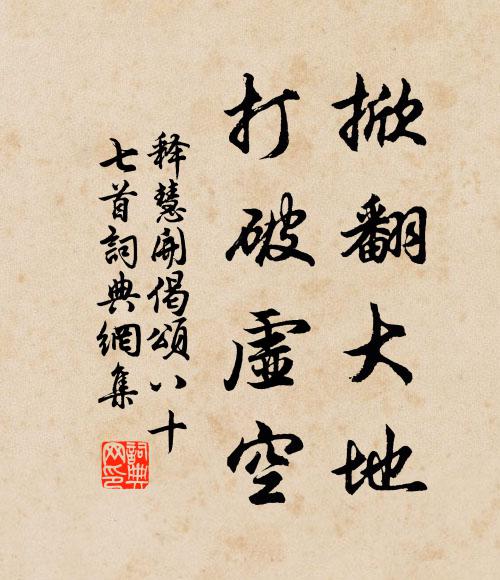 掀翻大地
打破虛空
釋慧開偈頌八十
七首詞典網集
詞典
网印